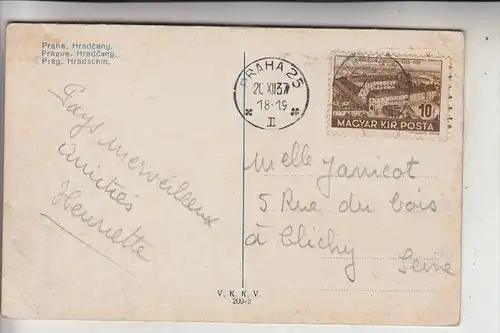 Praha, Hradčany.
Prague, Hradčany.
Prag, Hradschin.
PRAHA 25
20 XII 37
18-19
II
10f
MAGYAR·KIR·POSTA
Pays merveilleux
Amitiés
Henriette
Melle Janicot
5 Rue du bois
à Clichy
Seine
V. K. K. V.
200-3